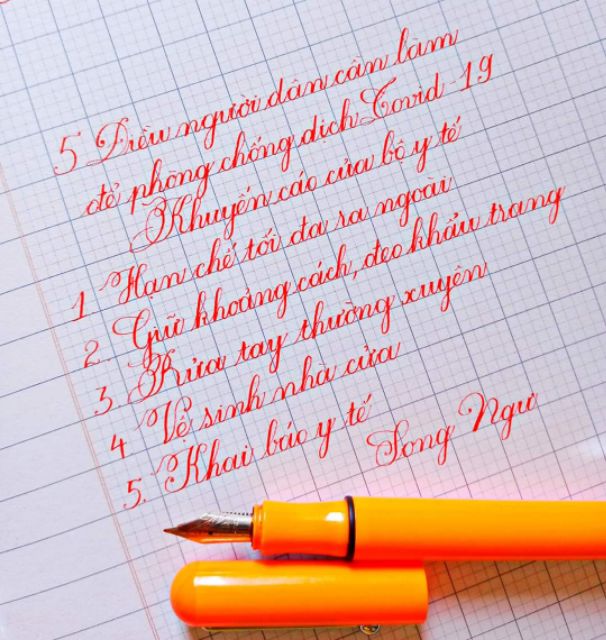 5 Điều người dân cần làm
để phòng chống dịch Covid-19
Khuyến cáo của bộ y tế
1 Hạn chế tối đa ra ngoài
2. Giữ khoảng cách, đeo khẩu trang
3. Rửa tay thường xuyên
4 Vệ sinh nhà cửa
5. Khai báo y tế
Song Ngư